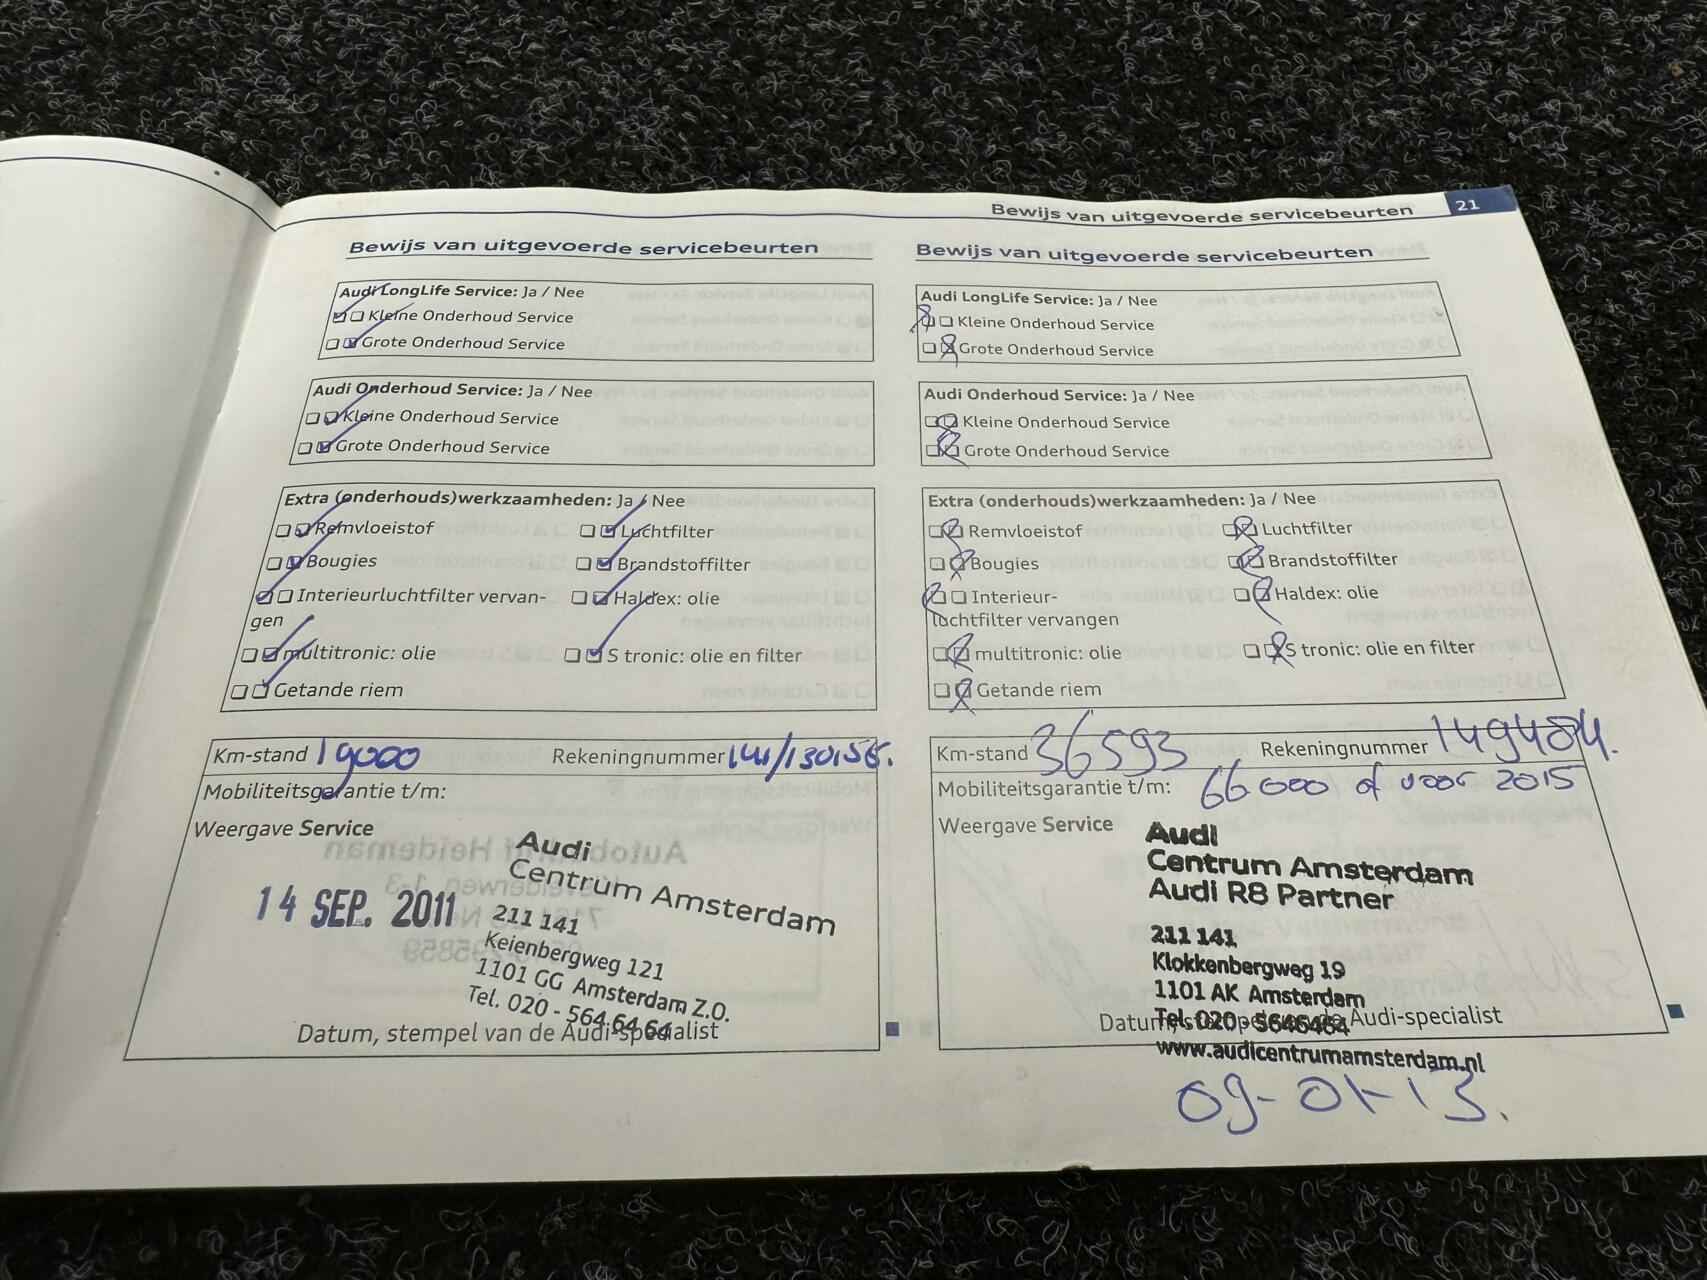 Bewijs van uitgevoerde servicebeurten 21
Bewijs van uitgevoerde servicebeurten
Audi LongLife Service: Ja / Nee
Kleine Onderhoud Service
Grote Onderhoud Service
Audi Onderhoud Service: Ja / Nee
Kleine Onderhoud Service
Grote Onderhoud Service
Extra (onderhouds)werkzaamheden: Ja / Nee
Remvloeistof Luchtfilter
Bougies Brandstoffilter
Interieurluchtfilter vervan- Haldex: olie
gen
multitronic: olie S tronic: olie en filter
Getande riem
Km-stand 19000 Rekeningnummer
Mobiliteitsgarantie t/m:
Weergave Service
14 SEP. 2011
Audi
Centrum Amsterdam
211 141
Keienbergweg 121
1101 GG Amsterdam Z.O.
Tel. 020 - 564 64 64
Datum, stempel van de Audi-specialist
Bewijs van uitgevoerde servicebeurten
Audi LongLife Service: Ja / Nee
Kleine Onderhoud Service
Grote Onderhoud Service
Audi Onderhoud Service: Ja / Nee
Kleine Onderhoud Service
Grote Onderhoud Service
Extra (onderhouds)werkzaamheden: Ja / Nee
Remvloeistof Luchtfilter
Bougies Brandstoffilter
Interieur- Haldex: olie
luchtfilter vervangen
multitronic: olie S tronic: olie en filter
Getande riem
Km-stand 36593 Rekeningnummer 149484.
Mobiliteitsgarantie t/m: 66000 of voor 2015
Weergave Service
Audi
Centrum Amsterdam
Audi R8 Partner
211 141
Klokkenbergweg 19
1101 AK Amsterdam
Tel. 020 - 5646464
Datum, stempel van de Audi-specialist
www.audicentrumamsterdam.nl
09-01-13.